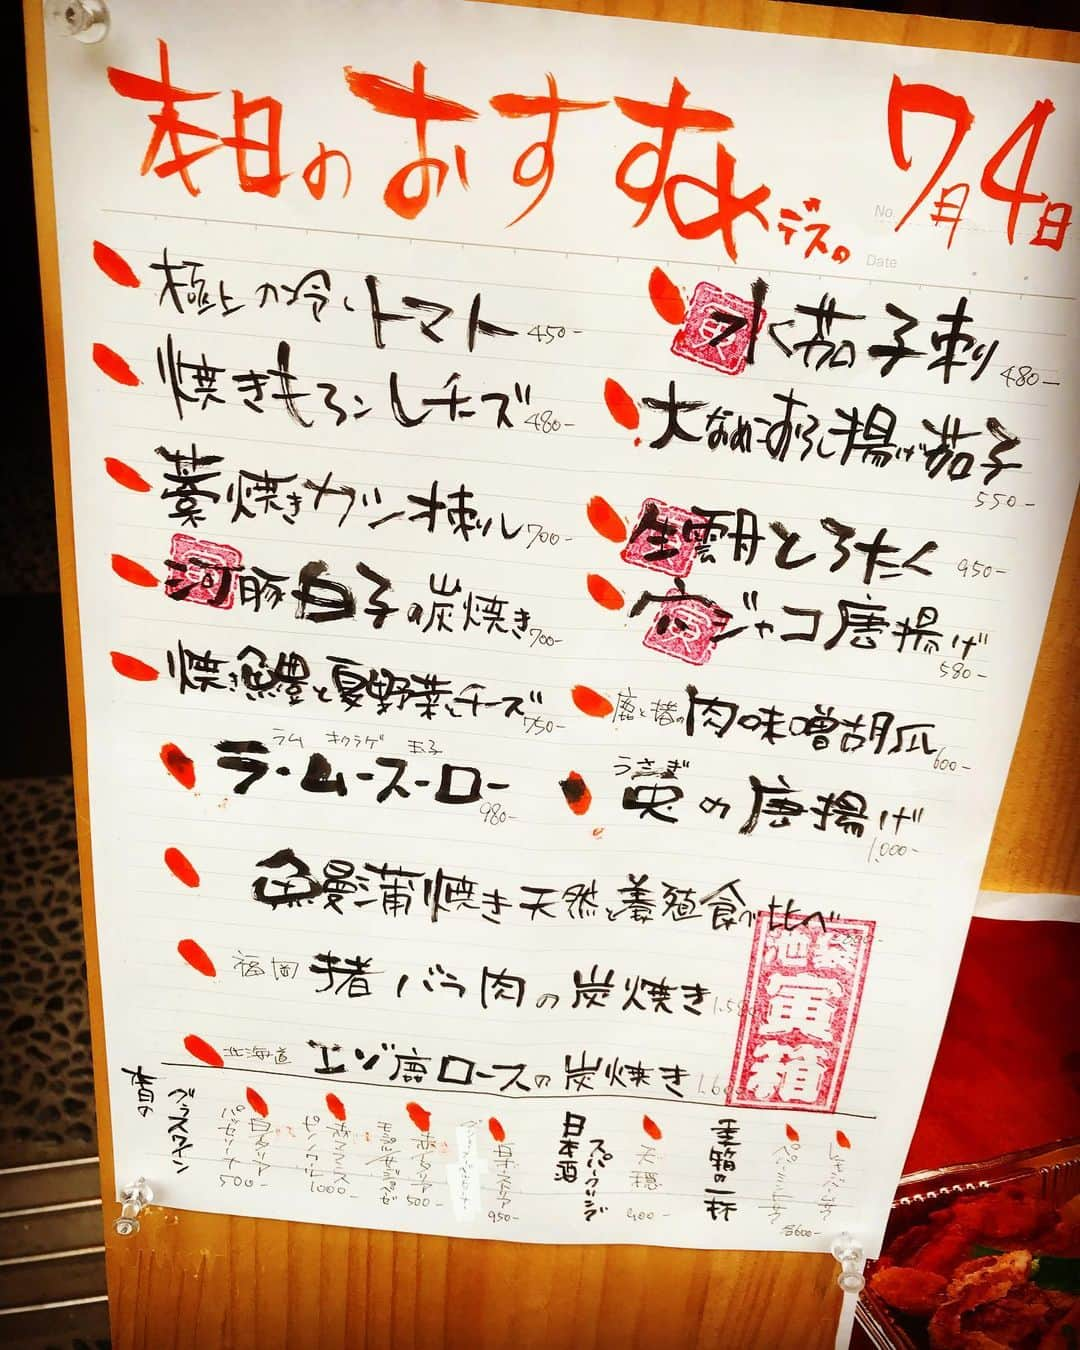 本日のおすすめデスの
7月4日
No.
Date
極上カ冷しトマト 450-
焼きもろこしチーズ 480-
藁焼きカツオ刺し 700-
河豚白子の炭焼き 700-
焼き鱧と夏野菜とチーズ 750-
ラム キクラゲ 玉子
ラ・ムースーロー 980-
水く茄子刺 480-
大なめこおろし揚げ茄子 550-
生雲丹とろたく 950-
穴ジャコ唐揚げ 580-
鹿と猪の肉味噌胡瓜 600-
うさぎ
兎の唐揚げ 1,000-
鰻蒲焼き天然と養殖食べ比べ
福岡 猪バラ肉の炭焼き
北海道 エゾ鹿ロースの炭焼き
池袋
寅箱
本日の
グラスワイン
白イタリア
パッセリーナ
500-
赤フランス
ピノノワール
1000-
赤イタリア
500-
950-
日本酒
スパークリング
天穏
900-
寅箱の一杯
各600-